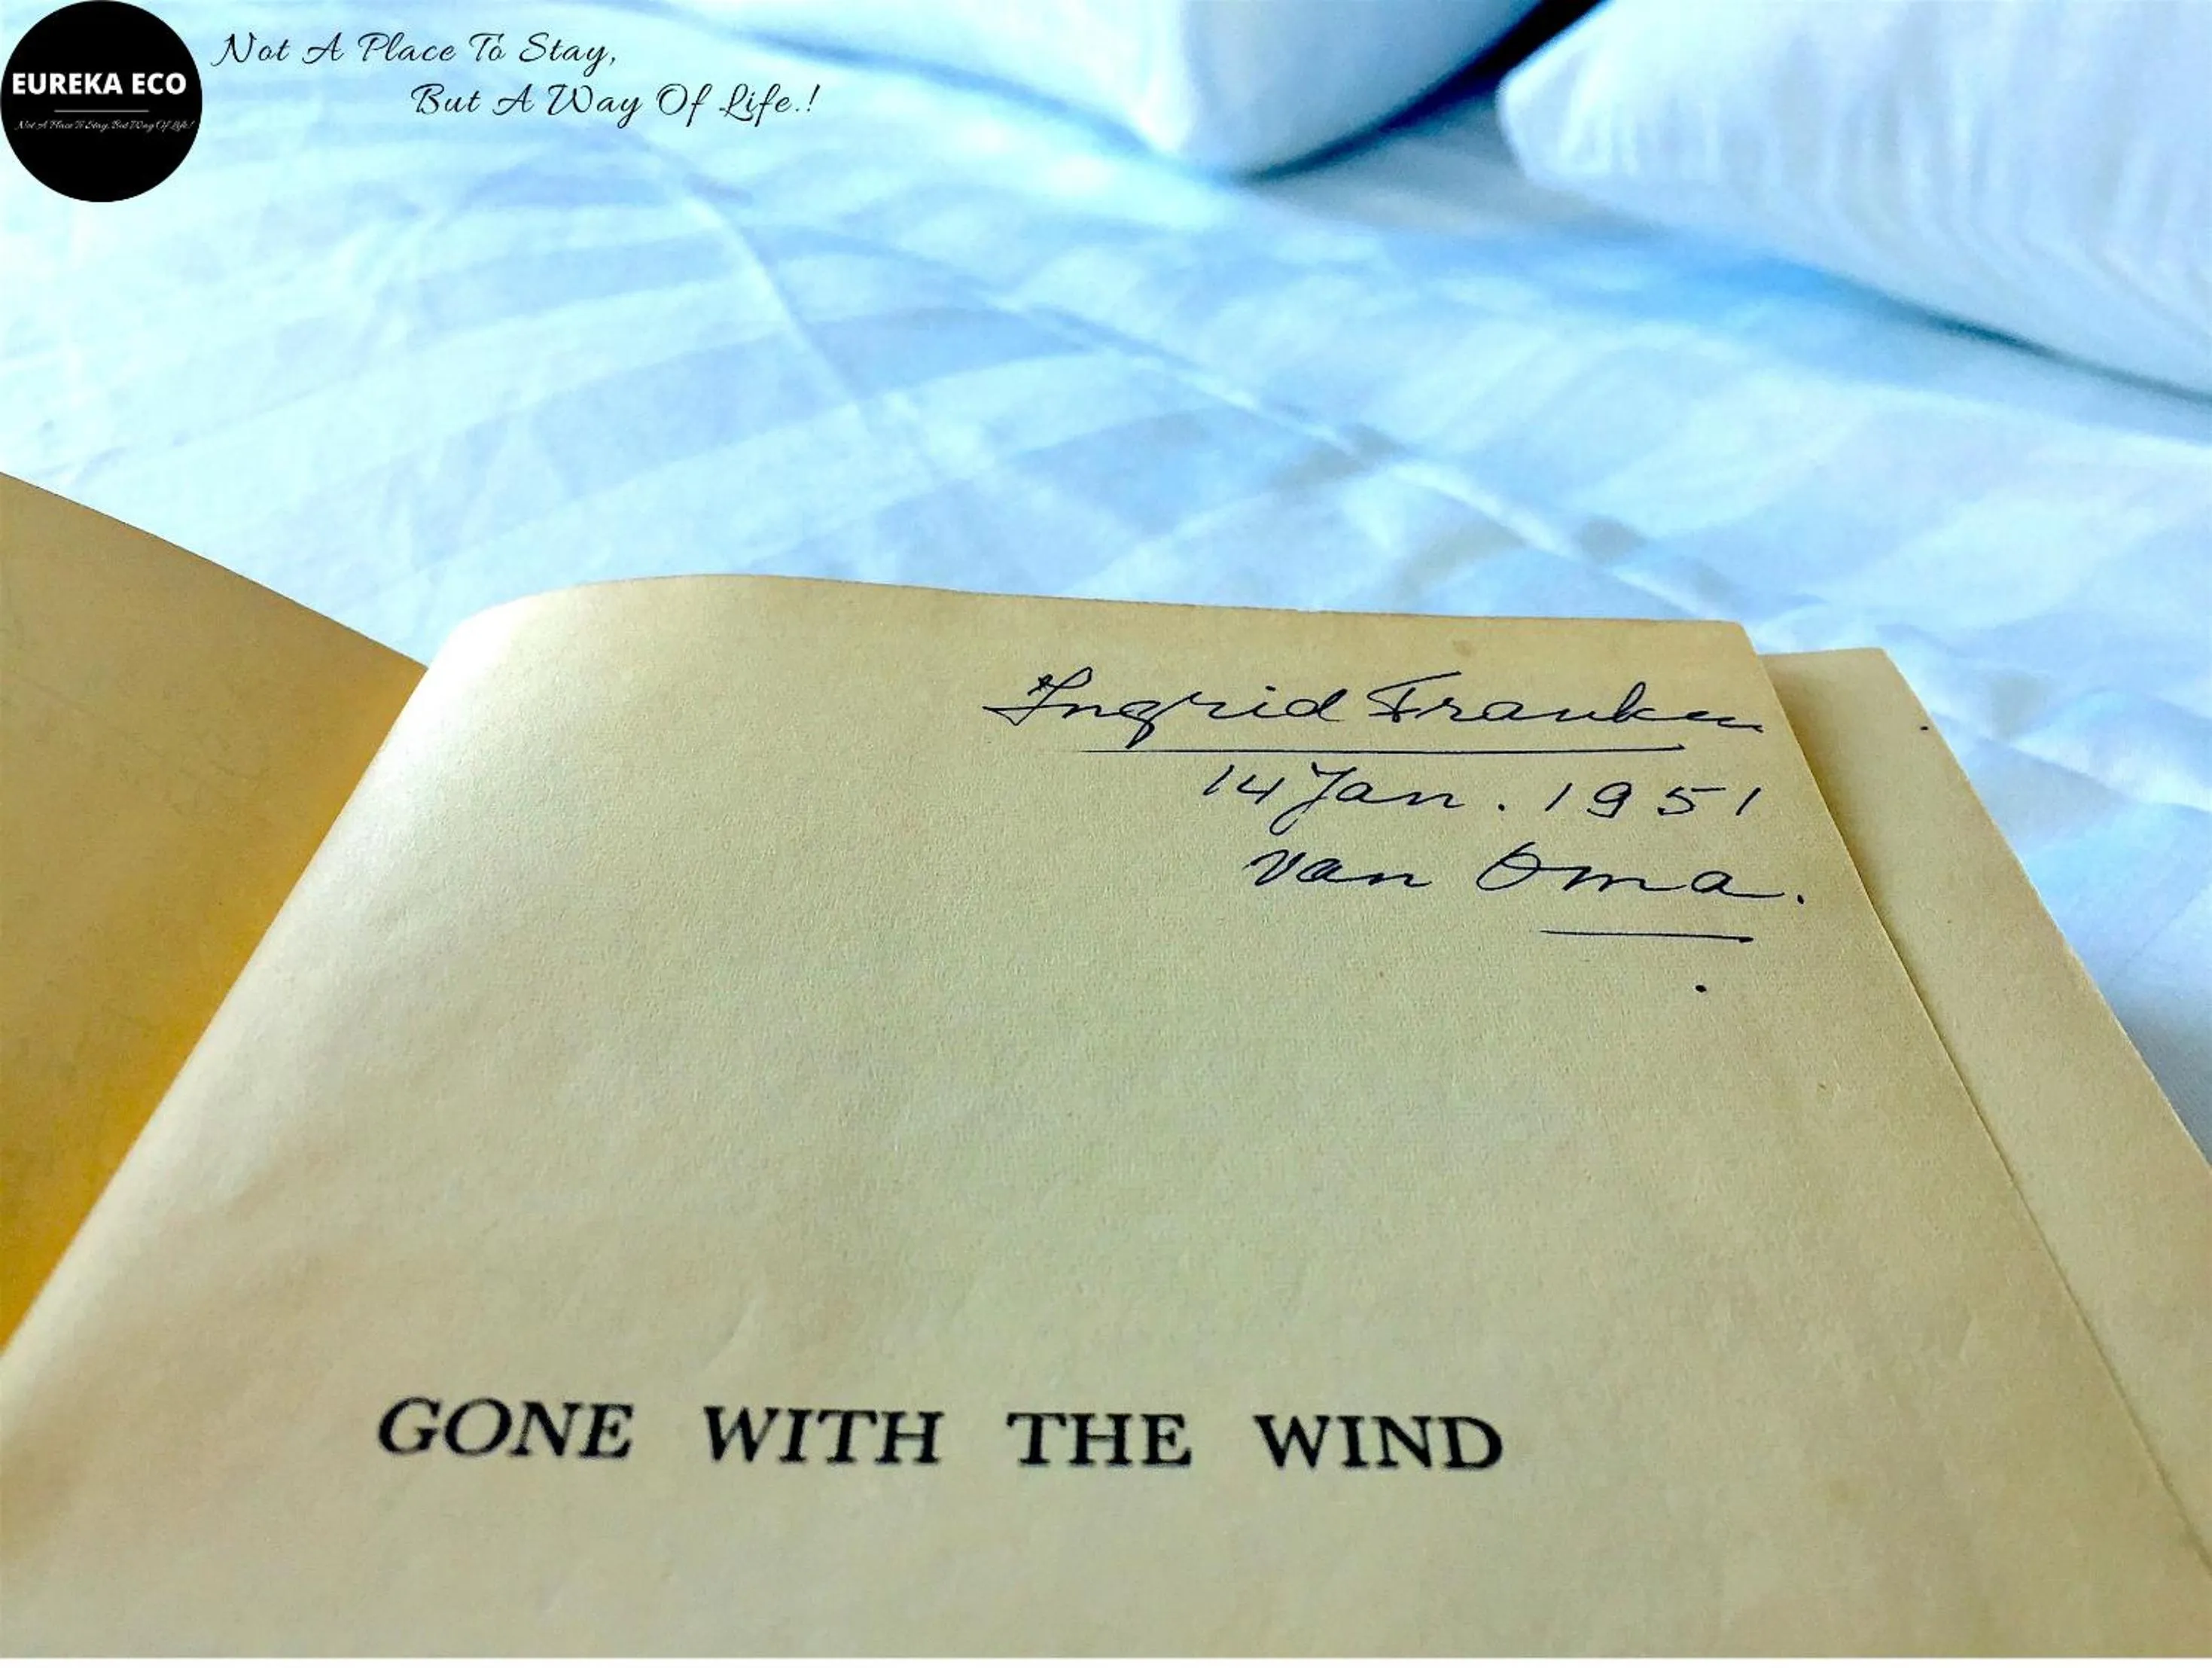 EUREKA ECO
Not A Place To Stay, But Way Of Life!
Not A Place To Stay,
But A Way Of Life.!
Ingrid Franken
14 Jan. 1951
van Oma.
GONE WITH THE WIND